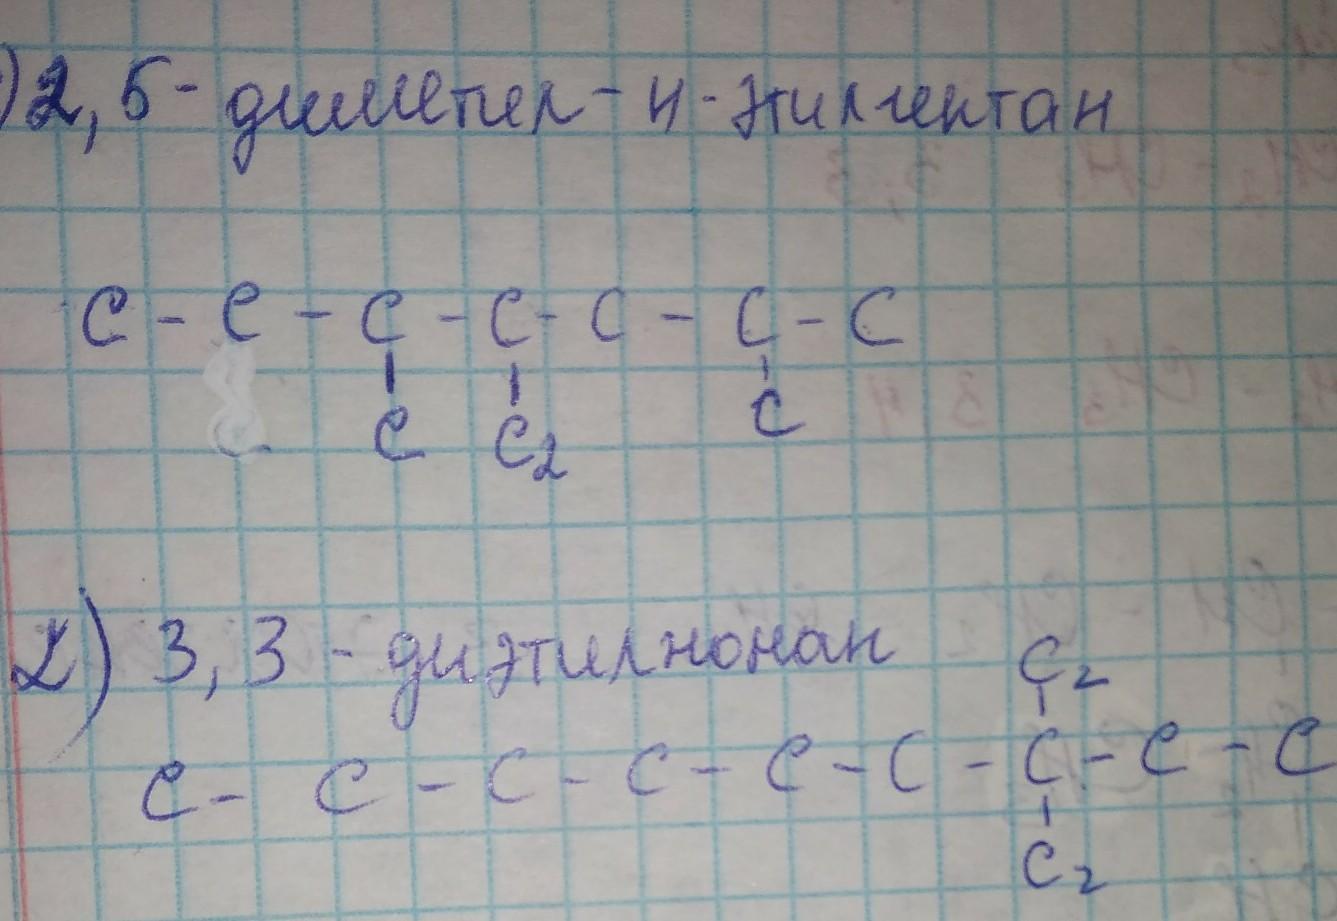 ) 2, 5 - диметил - 4 - этилгептан
C - C - C - C - C - C - C
C C2 C
2) 3, 3 - диэтилнонан
C2
C - C - C - C - C - C - C - C - C
C2